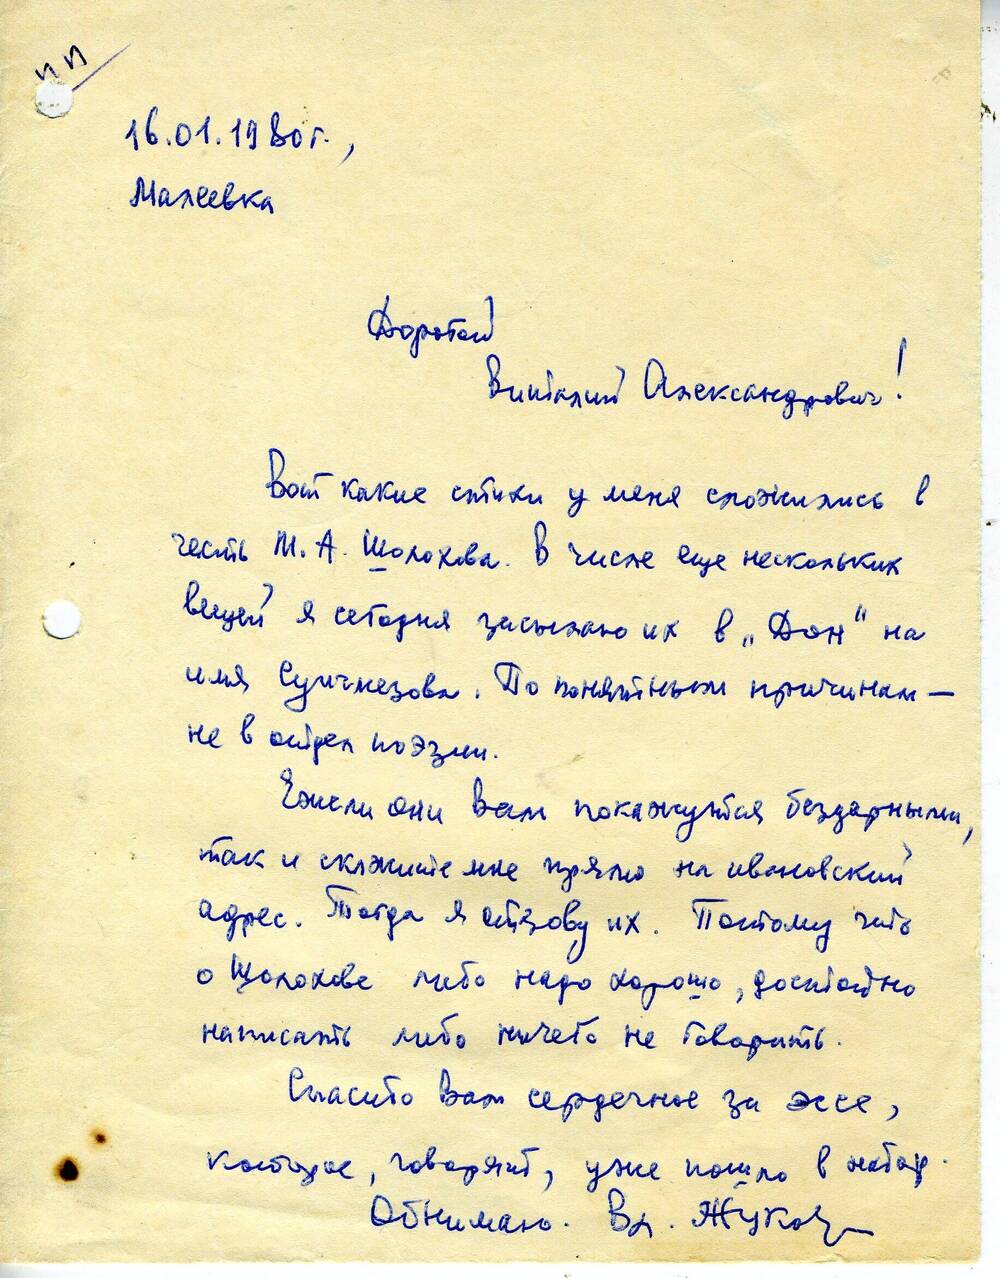 16.01.1980г.,
Малеевка
Дорогой
Виталий Александрович!
Вот какие стихи у меня сложились в
честь М. А. Шолохова. В числе еще нескольких
вещей я сегодня засылаю их в „Дон" на
имя Суичмезова. По понятным причинам —
не в отдел поэзии.
Ежели они Вам покажутся бездарными,
так и скажите мне прямо на ивановский
адрес. Тогда я отзову их. Потому что
о Шолохове либо надо хорошо, достойно
написать либо ничего не говорить.
Спасибо Вам сердечное за эссе,
которое, говорят, уже пошло в набор.
Обнимаю. Вл. Жуков